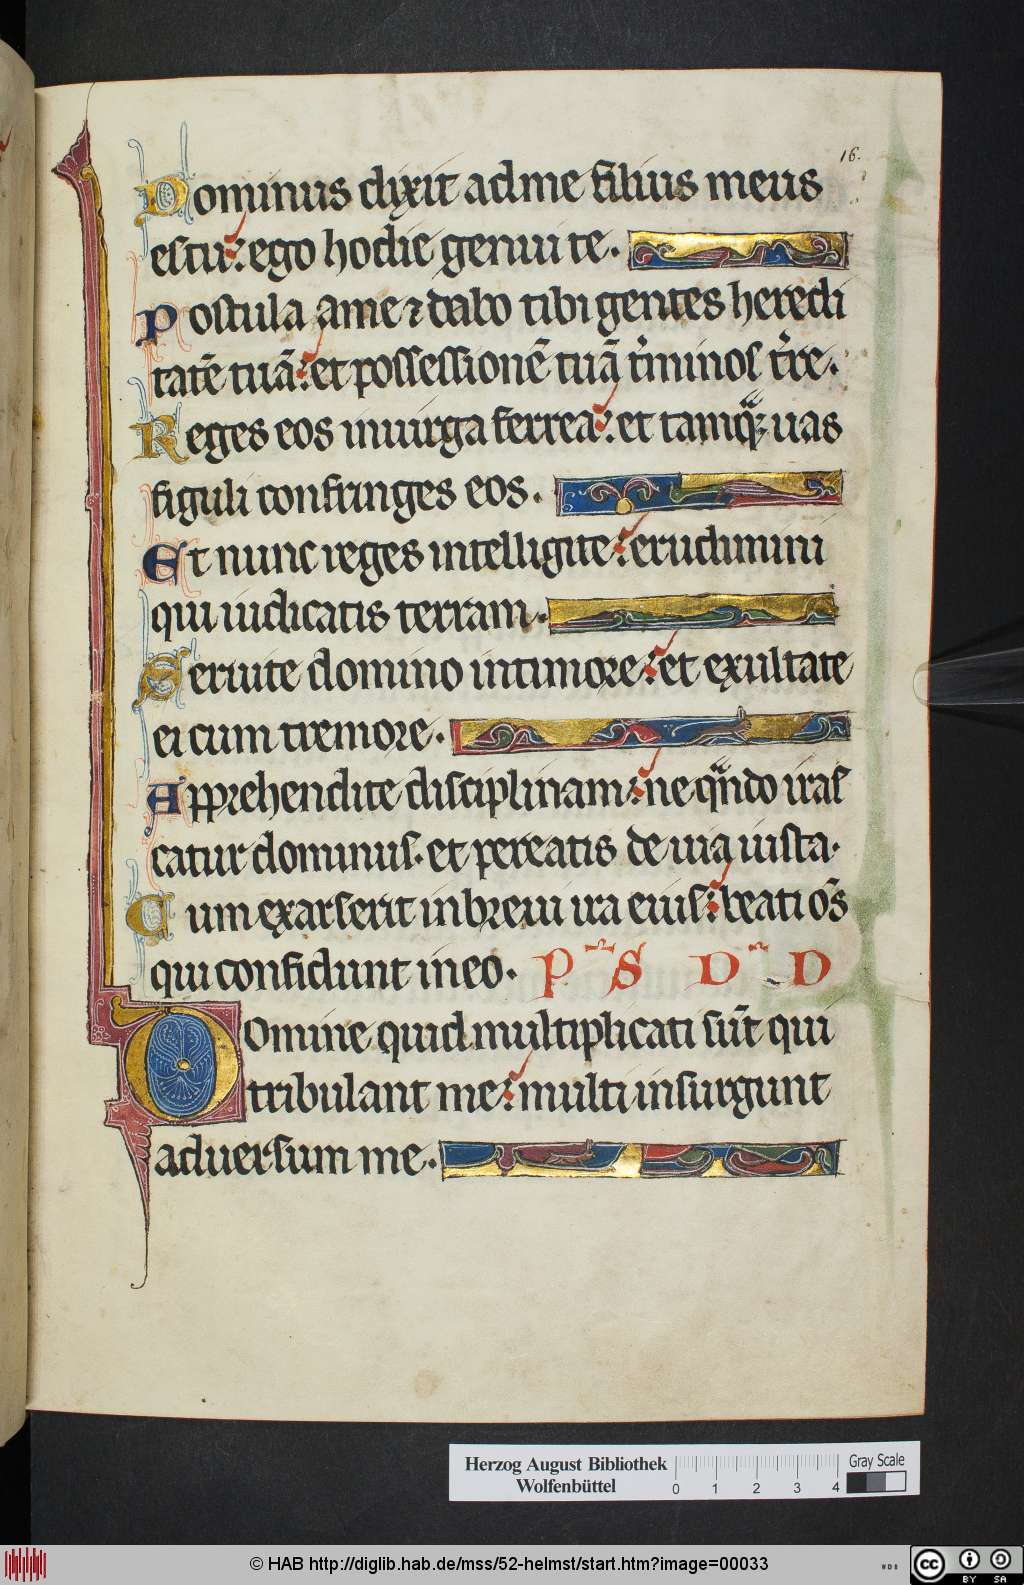 16.
Dominus dixit ad me filius meus
es tu: ego hodie genui te.
Postula a me ⁊ dabo tibi gentes heredi
tatē tuā: et possessionē tuā t̾minos t̾re.
Reges eos in uirga ferrea: et tamqꝫ uas
figuli confringes eos.
Et nunc reges intelligite: erudimini
qui iudicatis terram.
Seruite domino in timore: et exultate
ei cum tremore.
Apprehendite disciplinam: ne qn̄do iras
catur dominus. et pereatis de uia iusta.
Cum exarserit in breui ira eius: beati oēs
qui confidunt in eo. P S D D
Domine quid multiplicati sūt qui
tribulant me: multi insurgunt
aduersum me.
Herzog August Bibliothek
Wolfenbüttel
0 1 2 3 4
Gray Scale
© HAB http://diglib.hab.de/mss/52-helmst/start.htm?image=00033
WDB
cc BY SA